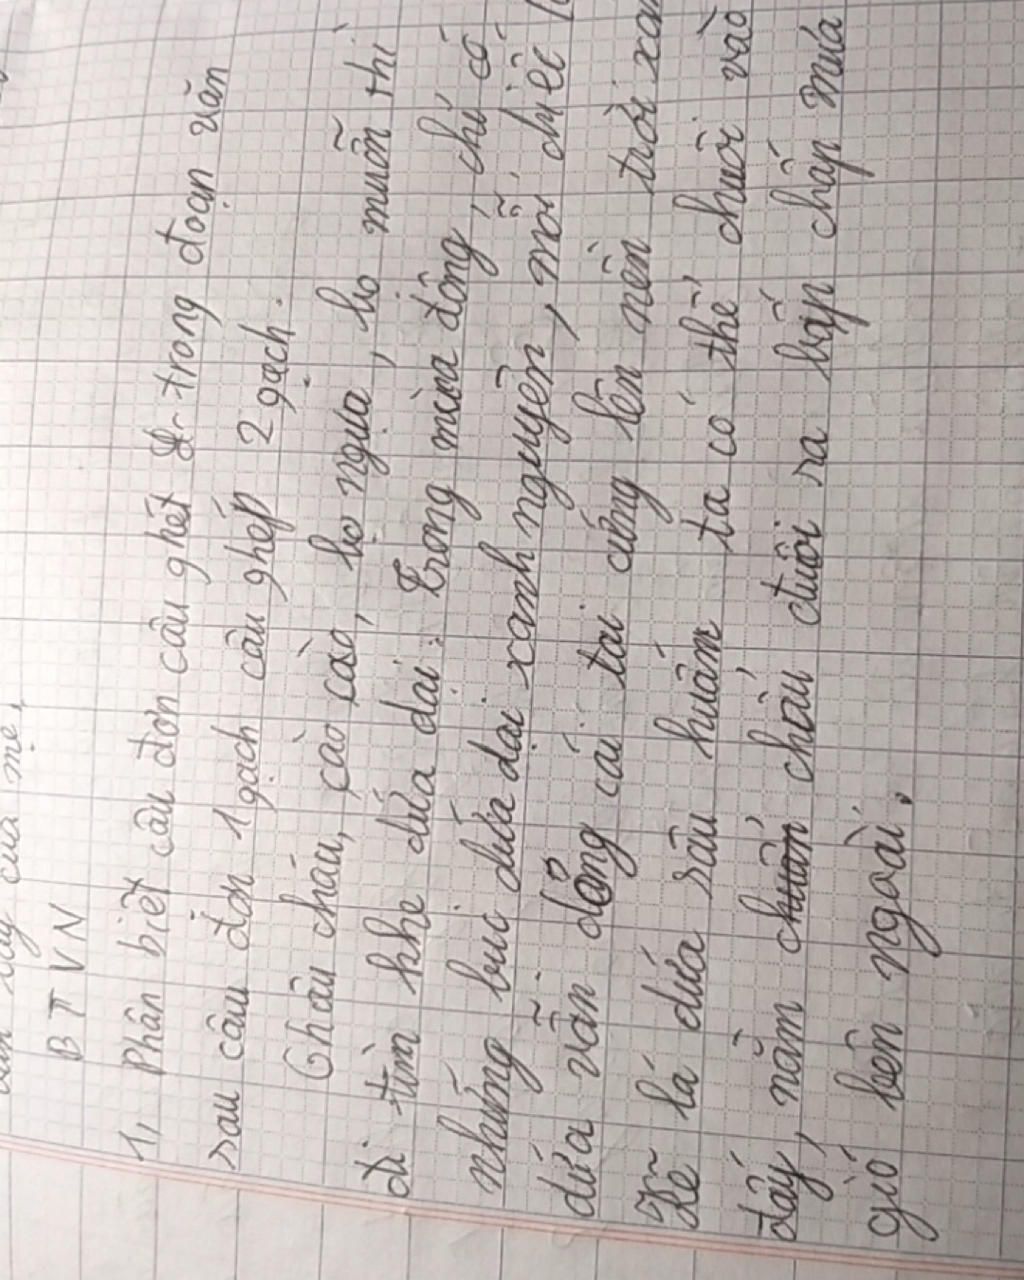 của mẹ,
B T V N
1, Phân biệt câu đơn câu ghét trong đoạn văn
sau câu đơn 1 gạch câu ghép 2 gạch.
Châu chấu, cào cào, bọ ngựa, bọ muỗn thì
đi tìm khe dứa dại. Trong mùa đông, chỉ có
những bụi dứa dại xanh nguyên, mỗi chiếc
dứa vẫn dỏng cái tai cứng lên nền trời xa
Kẽ lá dứa sâu hoắm ta có thể chuồi vào
đấy, nằm chuẩn chẩu đuôi ra bập chấp mưa
gió bên ngoài.